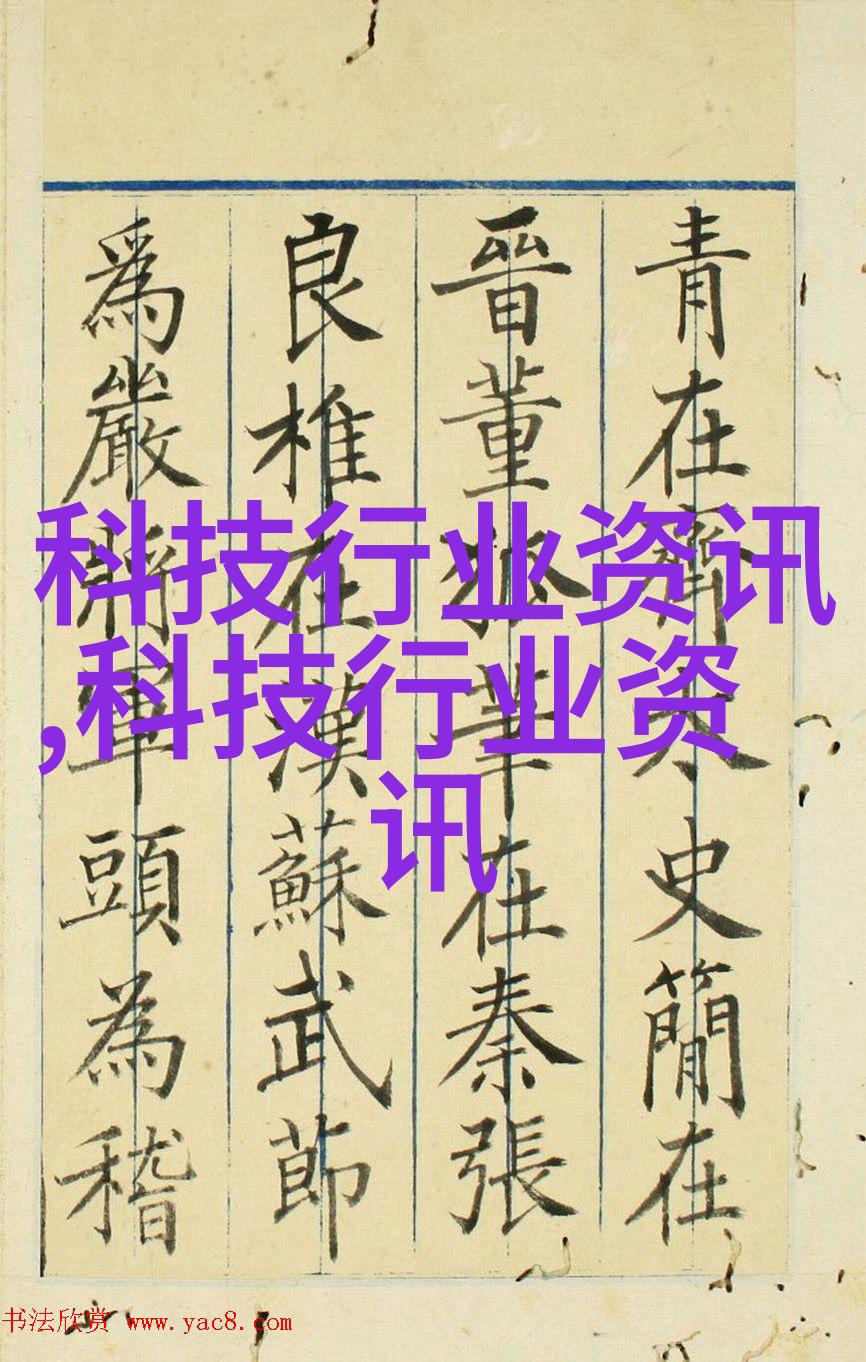 科技行业资讯
,科技行业资
讯
青在齊太史簡在
晉董狐筆在秦張
良椎在漢蘇武節
爲嚴將軍頭為稽
书法欣赏 www.yac8.com